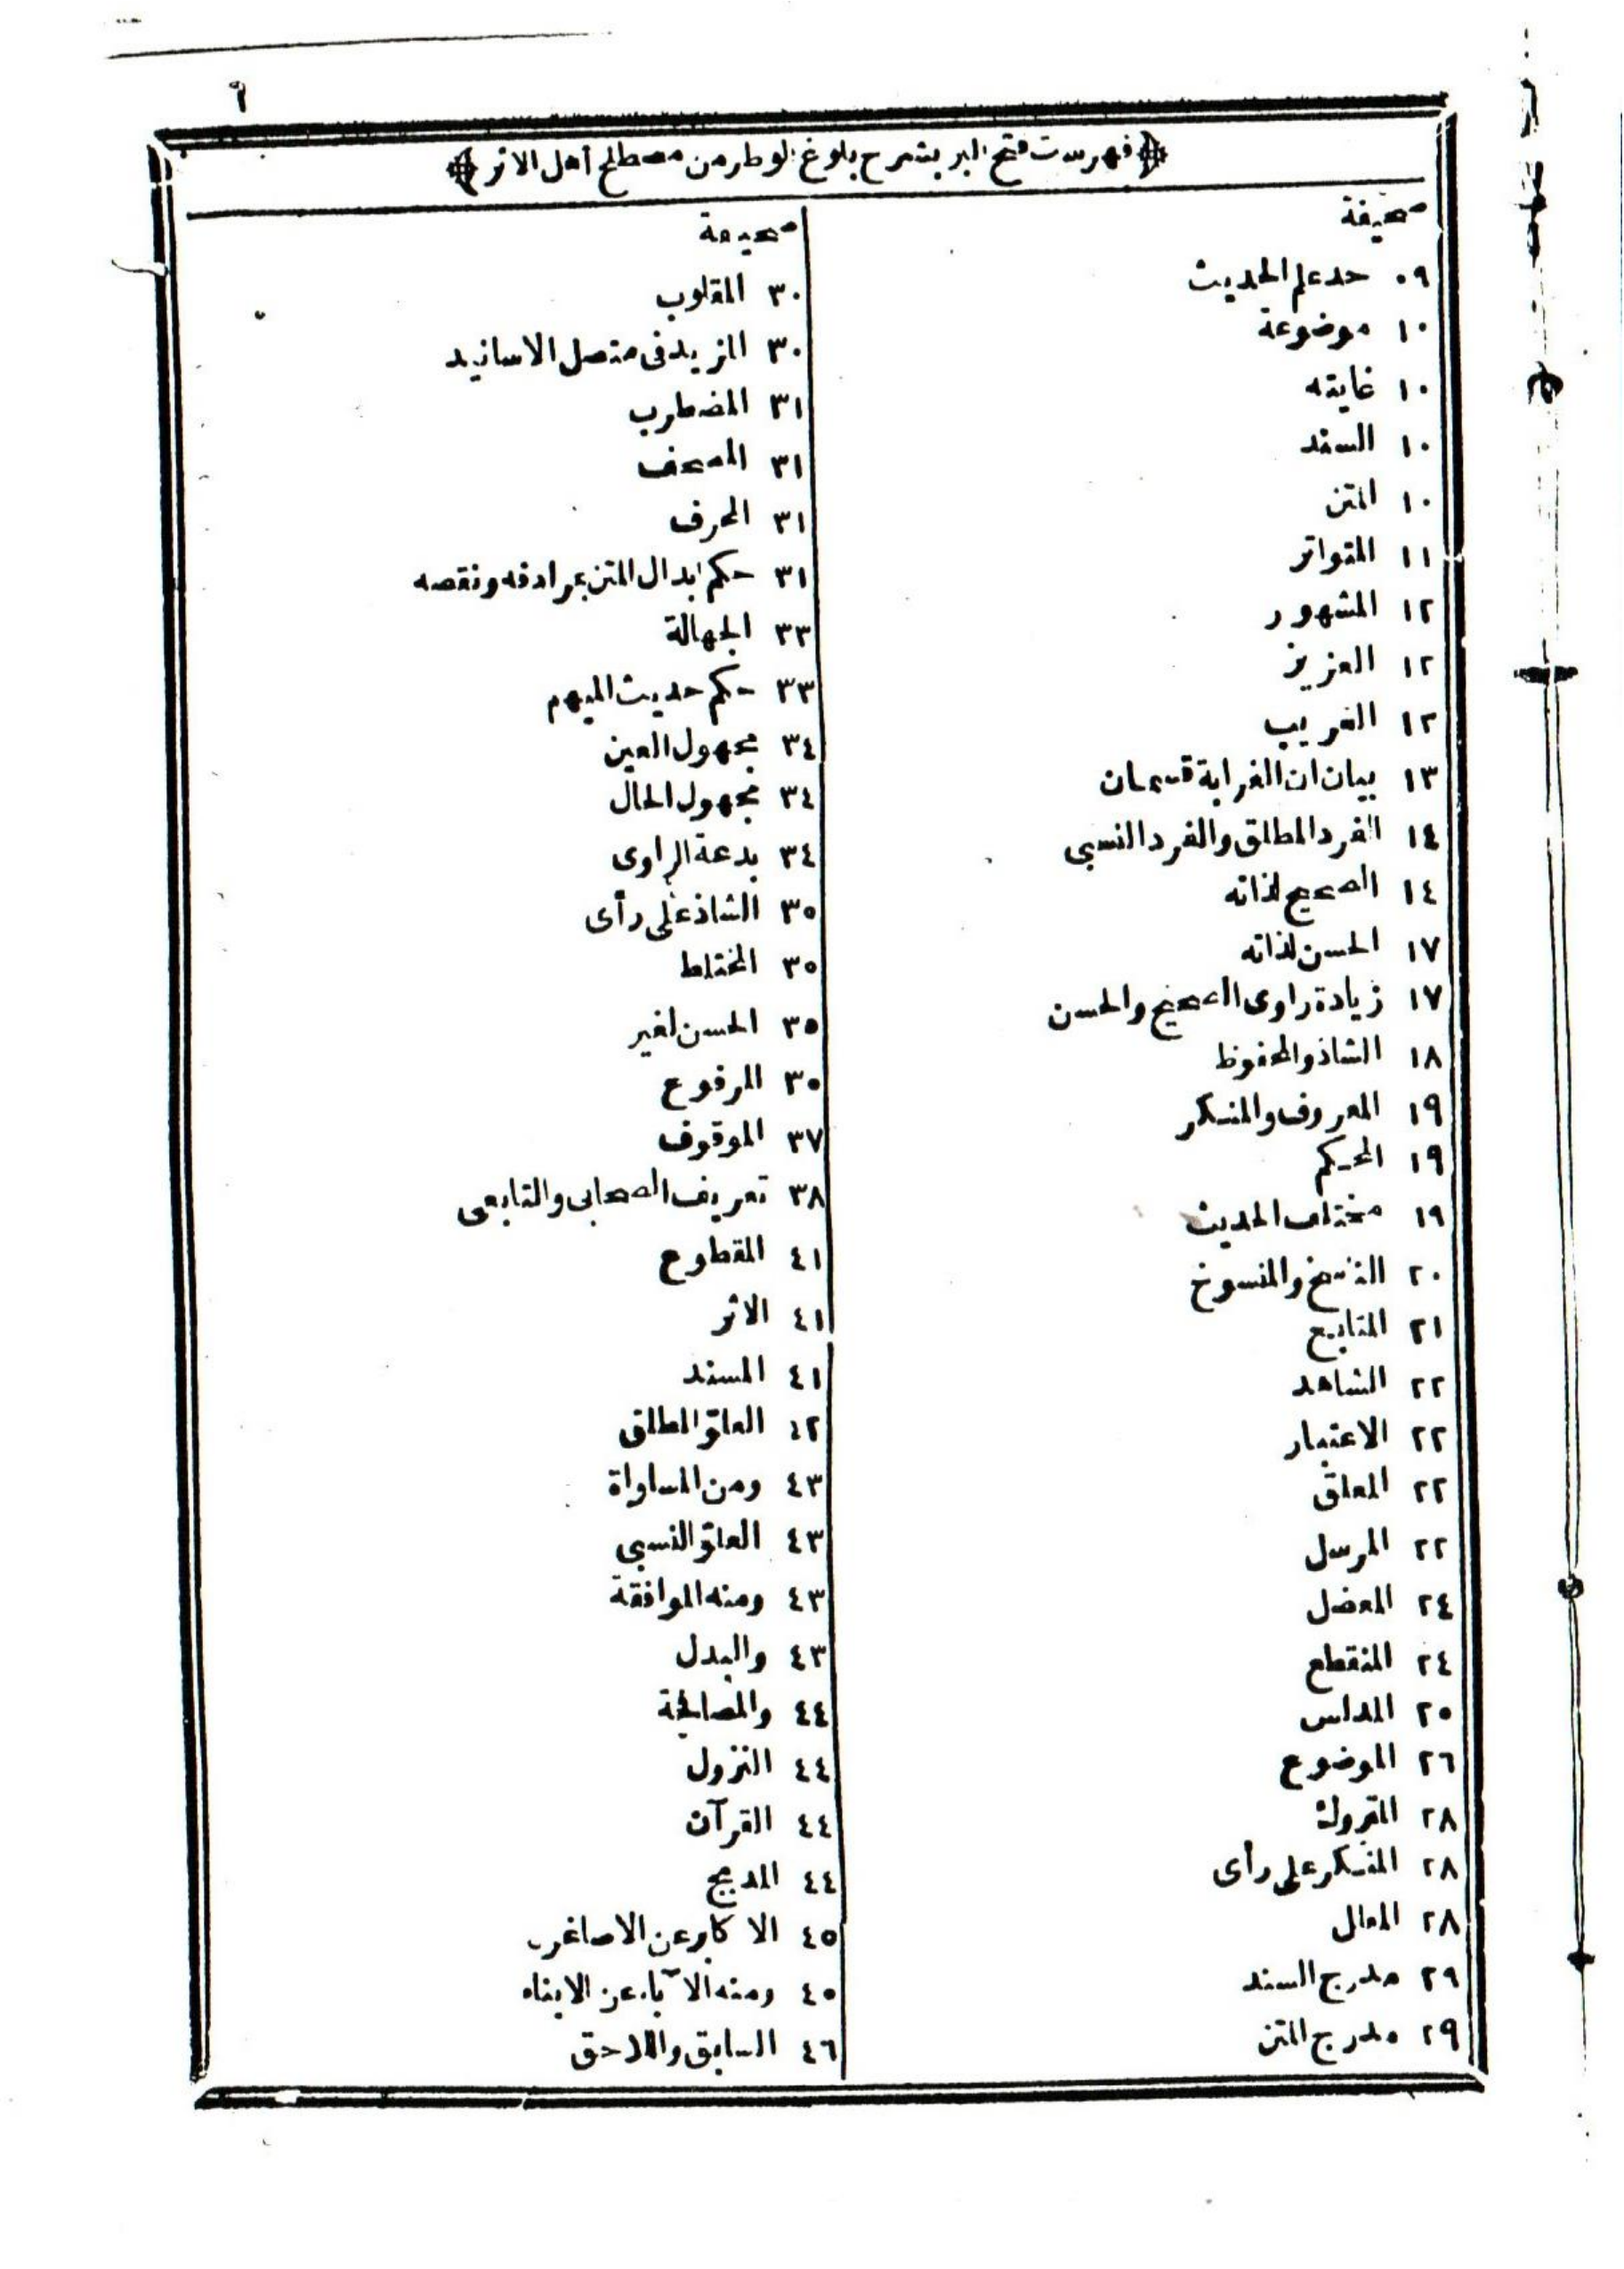 فهرست فتح البر بشرح بلوغ الوطر من مصطلح أهل الاثر
صحيفة
٠٩ حد علم الحديث
١٠ موضوعة
١٠ غايته
١٠ السند
١٠ المتن
١١ المتواتر
١٢ المشهور
١٢ العزيز
١٢ الغريب
١٣ بيان ان الغرابة قسمان
١٤ الفرد المطلق والفرد النسبى
١٤ الصحيح لذاته
١٧ الحسن لذاته
١٧ زيادة راوى الصحيح والحسن
١٨ الشاذ والمحفوظ
١٩ المعروف والمنكر
١٩ المحكم
١٩ مختلف الحديث
٢٠ الناسخ والمنسوخ
٢١ المتابع
٢٢ الشاهد
٢٢ الاعتبار
٢٢ المعلق
٢٢ المرسل
٢٤ المعضل
٢٤ المنقطع
٢٥ المدلس
٢٦ الموضوع
٢٨ المتروك
٢٨ المنكر على رأى
٢٨ المعلل
٢٩ مدرج السند
٢٩ مدرج المتن
صحيفة
٣٠ المقلوب
٣٠ المزيد فى متصل الاسانيد
٣١ المضطرب
٣١ المصحف
٣١ المحرف
٣١ حكم ابدال المتن بمرادفه ونقصه
٣٣ الجهالة
٣٣ حكم حديث المبهم
٣٤ مجهول العين
٣٤ مجهول الحال
٣٤ بدعة الراوى
٣٥ الشاذ على رأى
٣٥ المختلط
٣٥ الحسن لغير
٣٥ المرفوع
٣٧ الموقوف
٣٨ تعريف الصحابى والتابعى
٤١ المقطوع
٤١ الاثر
٤١ المسند
٤٢ العلو المطلق
٤٣ ومن المساواة
٤٣ العلو النسبى
٤٣ ومنه الموافقة
٤٣ والبدل
٤٤ والمصافحة
٤٤ النزول
٤٤ القرآن
٤٤ المدبج
٤٥ الاكابر عن الاصاغر
٤٥ ومنه الآباء عن الابناء
٤٦ السابق واللاحق